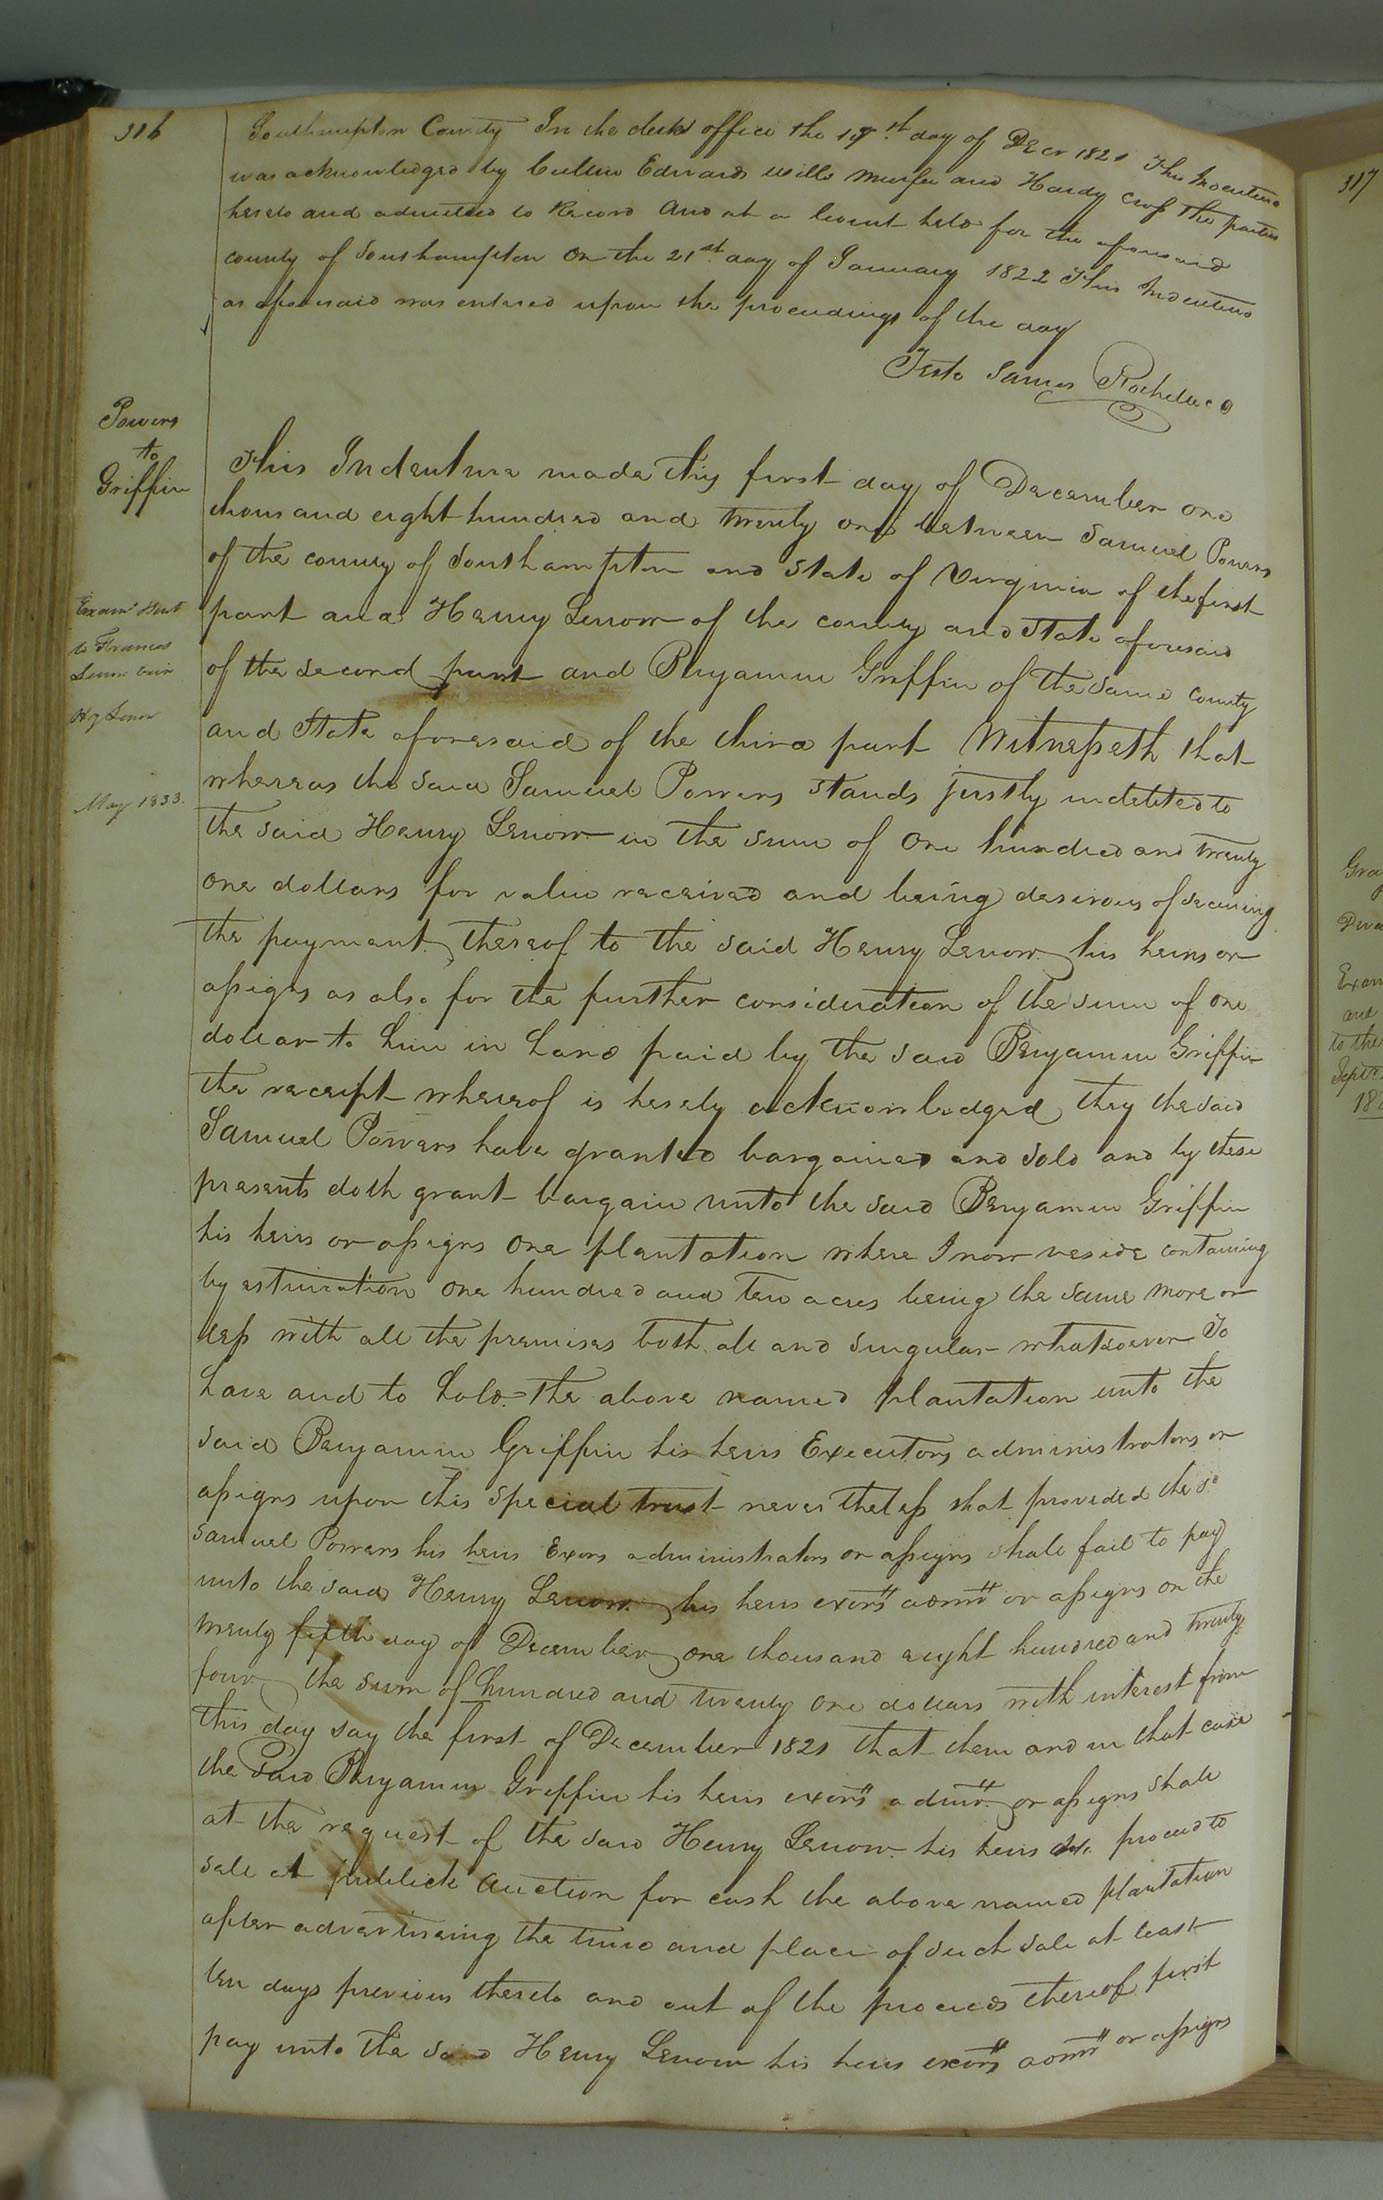 316
Southampton County In the clerks office the 19th day of Decr 1821 This Indenture
was acknowledged by Cullin Edwards Wills Murfee and Hardy Cross the parties
hereto and admitted to Record And at a Court held for the aforesaid
county of Southampton On the 21st day of January 1822 This Indenture
as aforesaid was entered upon the proceedings of the day
Teste James Rochelle C
Powers
to
Griffin
This Indenture made this first day of December one
thousand eight hundred and twenty one between Samuel Powers
of the county of Southampton and State of Virginia of the first
part and Henry Lenow of the county and State aforesaid
of the second part and Benjamin Griffin of the same county
and State aforesaid of the third part Witnesseth that
whereas the said Samuel Powers stands justly indebted to
the said Henry Lenow in the sum of One hundred and twenty
one dollars for value received and being desirous of securing
the payment thereof to the said Henry Lenow his heirs or
assigns as also for the further consideration of the sum of one
dollar to him in hand paid by the said Benjamin Griffin
the receipt whereof is hereby acknowledged they the said
Samuel Powers have granted bargained and sold and by these
presents doth grant bargain unto the said Benjamin Griffin
his heirs or assigns One plantation where I now reside containing
by estimation One hundred and ten acres being the same more or
less with all the premises both all and singular whatsoever To
have and to hold the above named plantation unto the
said Benjamin Griffin his heirs Executors administrators or
assigns upon this special trust nevertheless that provided the sd
Samuel Powers his heirs Exors administrators or assigns shall fail to pay
unto the said Henry Lenow his heirs exors admrs or assigns on the
twenty fifth day of December one thousand eight hundred and twenty
four the sum of hundred and twenty one dollars with interest from
this day say the first of December 1821 that them and in that case
the said Benjamin Griffin his heirs exors admrs or assigns shall
at the request of the said Henry Lenow his heirs &c proceed to
sale at publick auction for cash the above named plantation
after advertiseing the time and place of such sale at least
ten days previous thereto and out of the proceeds thereof first
pay unto the said Henry Lenow his heirs exors admrs or assigns
Examd & sent
to Frances
Lenow
Hy Lenow
May 1833.
317
Gray
Exam
and
to the
Septr
18